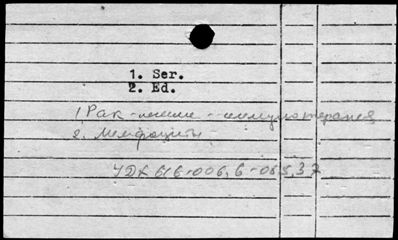 1. Ser.
2. Ed.
1. Рак - лечение - иммунотерапия
2. Лимфоциты
УДК 616-006.6-085.37